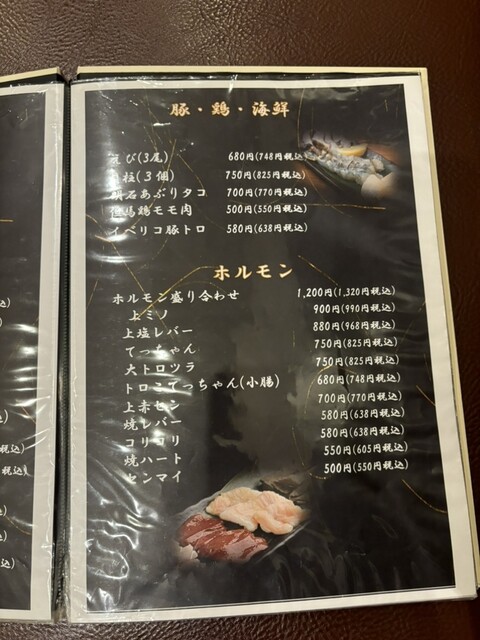 豚・鶏・海鮮
えび(3尾) 680円(748円税込)
貝柱(3個) 750円(825円税込)
明石あぶりタコ 700円(770円税込)
但馬鶏モモ肉 500円(550円税込)
イベリコ豚トロ 580円(638円税込)
ホルモン
ホルモン盛り合わせ 1,200円(1,320円税込)
上ミノ 900円(990円税込)
上塩レバー 880円(968円税込)
てっちゃん 750円(825円税込)
大トロツラ 750円(825円税込)
トロミてっちゃん(小腸) 680円(748円税込)
上赤セン 700円(770円税込)
焼レバー 580円(638円税込)
コリコリ 580円(638円税込)
焼ハート 550円(605円税込)
センマイ 500円(550円税込)
込)
込)
税込)
円税込)
税込)
込)
込)